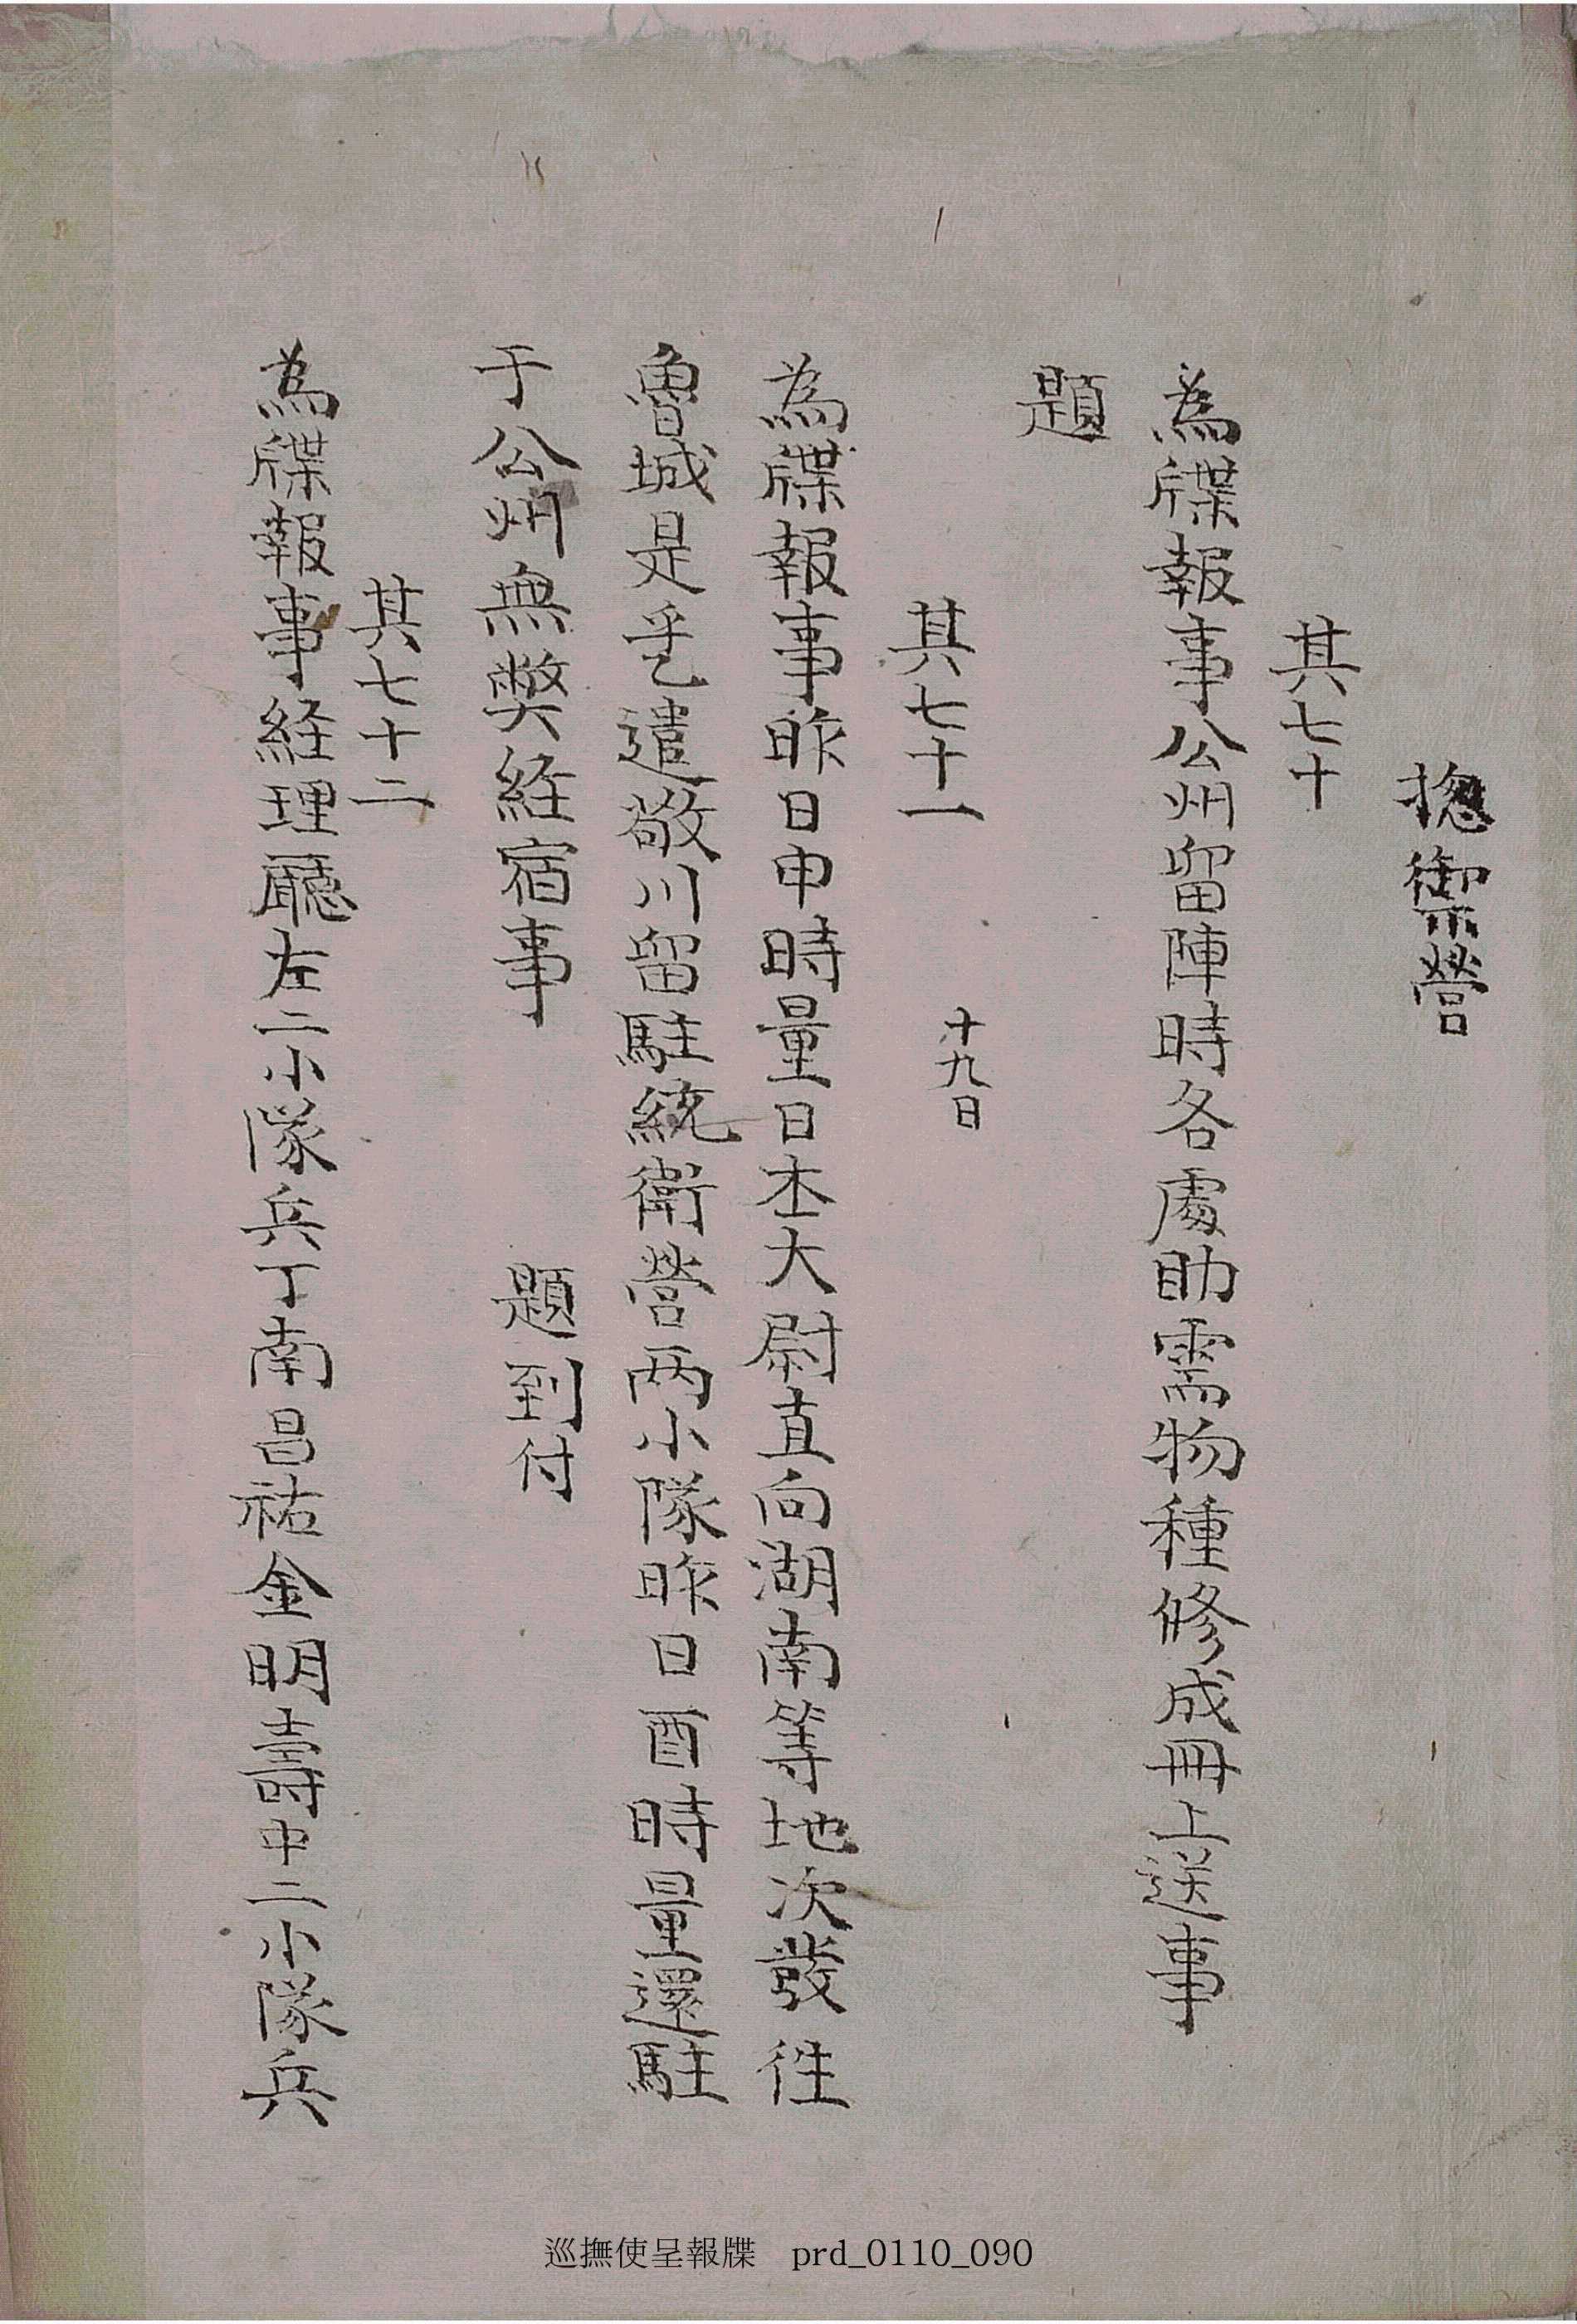 捴禦營
其七十
為牒報事公州留陣時各處助需物種修成冊上送事
題
其七十一　十九日
為牒報事昨日申時量日本大尉直向湖南等地次發徃
魯城是乎乙遣敬川留駐統衛營两小隊昨日酉時量還駐
于公州無弊経宿事　題到付
其七十二
為牒報事経理廳左二小隊兵丁南昌祐金明壽中二小隊兵
巡撫使呈報牒　prd_0110_090